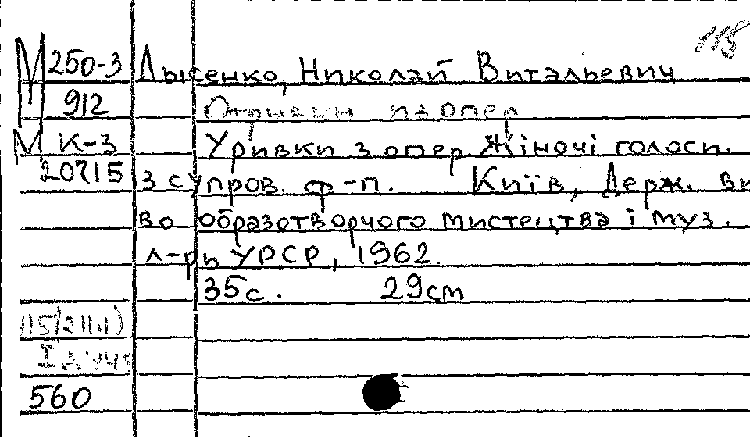 115
М 250-3 Лысенко, Николай Витальевич
912 Отрывки из опер
М К-3 Уривки з опер Жіночі голоси.
20715 з супров. ф-п. Київ, Держ. ви
во образотворчого мистецтва і муз.
л-ры УРСР, 1962.
35с. 29см
560